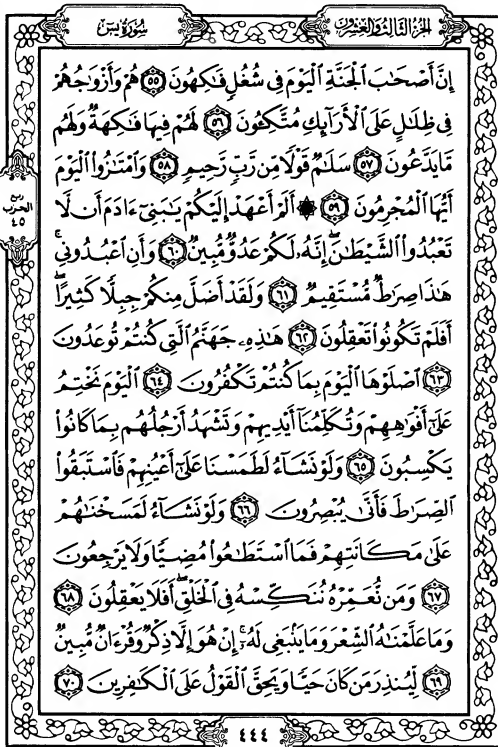 سُورَةُ يسٓ
الجُزْءُ الثَّالِثُ وَالعِشْرُونَ
إِنَّ أَصْحَٰبَ ٱلْجَنَّةِ ٱلْيَوْمَ فِى شُغُلٍ فَٰكِهُونَ ۝٥٥ هُمْ وَأَزْوَٰجُهُمْ
فِى ظِلَٰلٍ عَلَى ٱلْأَرَآئِكِ مُتَّكِـُٔونَ ۝٥٦ لَهُمْ فِيهَا فَٰكِهَةٌ وَلَهُم
مَّا يَدَّعُونَ ۝٥٧ سَلَٰمٌ قَوْلًا مِّن رَّبٍّ رَّحِيمٍ ۝٥٨ وَٱمْتَٰزُوا۟ ٱلْيَوْمَ
أَيُّهَا ٱلْمُجْرِمُونَ ۝٥٩ ۞ أَلَمْ أَعْهَدْ إِلَيْكُمْ يَٰبَنِىٓ ءَادَمَ أَن لَّا
تَعْبُدُوا۟ ٱلشَّيْطَٰنَ ۖ إِنَّهُۥ لَكُمْ عَدُوٌّ مُّبِينٌ ۝٦٠ وَأَنِ ٱعْبُدُونِى ۚ
هَٰذَا صِرَٰطٌ مُّسْتَقِيمٌ ۝٦١ وَلَقَدْ أَضَلَّ مِنكُمْ جِبِلًّا كَثِيرًا ۖ
أَفَلَمْ تَكُونُوا۟ تَعْقِلُونَ ۝٦٢ هَٰذِهِۦ جَهَنَّمُ ٱلَّتِى كُنتُمْ تُوعَدُونَ
۝٦٣ ٱصْلَوْهَا ٱلْيَوْمَ بِمَا كُنتُمْ تَكْفُرُونَ ۝٦٤ ٱلْيَوْمَ نَخْتِمُ
عَلَىٰٓ أَفْوَٰهِهِمْ وَتُكَلِّمُنَآ أَيْدِيهِمْ وَتَشْهَدُ أَرْجُلُهُم بِمَا كَانُوا۟
يَكْسِبُونَ ۝٦٥ وَلَوْ نَشَآءُ لَطَمَسْنَا عَلَىٰٓ أَعْيُنِهِمْ فَٱسْتَبَقُوا۟
ٱلصِّرَٰطَ فَأَنَّىٰ يُبْصِرُونَ ۝٦٦ وَلَوْ نَشَآءُ لَمَسَخْنَٰهُمْ
عَلَىٰ مَكَانَتِهِمْ فَمَا ٱسْتَطَٰعُوا۟ مُضِيًّا وَلَا يَرْجِعُونَ
۝٦٧ وَمَن نُّعَمِّرْهُ نُنَكِّسْهُ فِى ٱلْخَلْقِ ۖ أَفَلَا يَعْقِلُونَ ۝٦٨
وَمَا عَلَّمْنَٰهُ ٱلشِّعْرَ وَمَا يَنۢبَغِى لَهُۥٓ ۚ إِنْ هُوَ إِلَّا ذِكْرٌ وَقُرْءَانٌ مُّبِينٌ
۝٦٩ لِّيُنذِرَ مَن كَانَ حَيًّا وَيَحِقَّ ٱلْقَوْلُ عَلَى ٱلْكَٰفِرِينَ ۝٧٠
ربع
الحزب
٤٥
٤٤٤